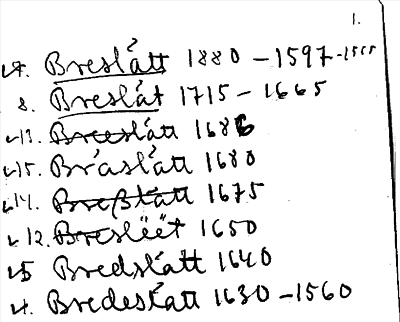 1.
17. Breslått 1880 - 1597 - 1555
8. Breslåt 1715 - 1665
13. Breeslått 1686
15. Bråslått 1680
14. Breßlått 1675
12. Breslëët 1650
5 Bredslått 1640
4. Bredeslått 1630 - 1560